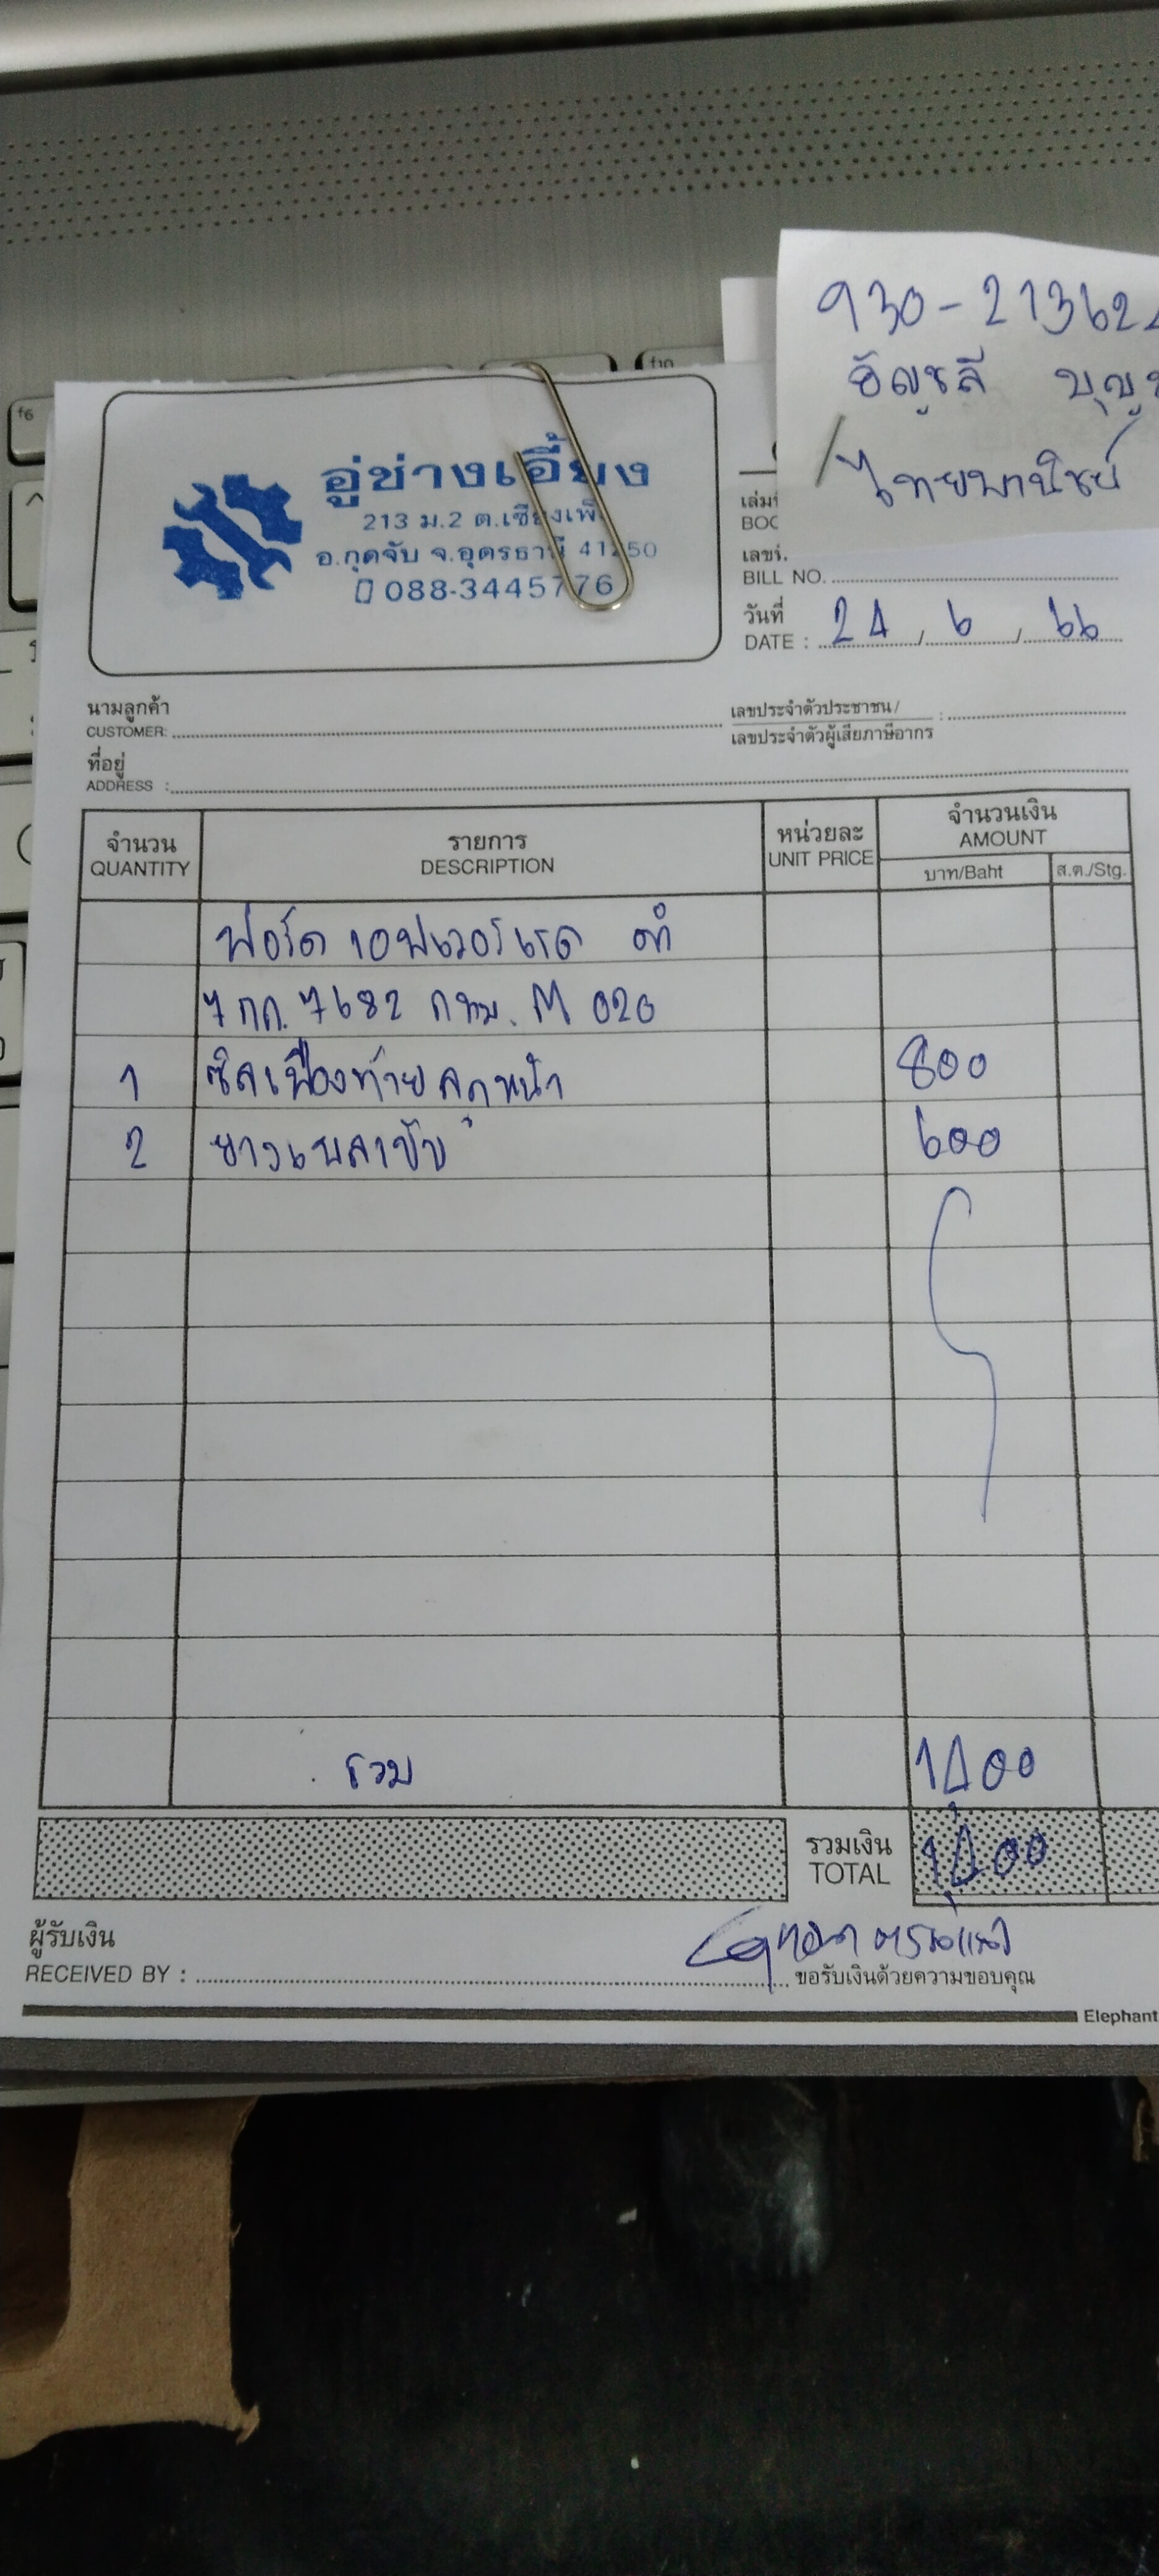 f6
f10
930-21362
อัญชลี
ไทยพานิชย์
อู่ช่างเอี้ยง
213 ม.2 ต.เชียงเพ็ง
อ.กุดจับ จ.อุดรธานี 41250
088-3445776
BILL NO.
วันที่
DATE : 24 / 6 / 66
นามลูกค้า
CUSTOMER:
เลขประจำตัวประชาชน /
เลขประจำตัวผู้เสียภาษีอากร :
ที่อยู่
ADDRESS :
จำนวน รายการ หน่วยละ จำนวนเงิน
QUANTITY DESCRIPTION UNIT PRICE AMOUNT
บาท/Baht ส.ต./Stg.
ฟอร์ด เอฟเวอร์เรส ดำ
7กก. 7682 กทม. M 020
1 ซิลเฟืองท้ายลูกหน้า 800
2 ยางเพลาขับ 600
รวม 1400
รวมเงิน
TOTAL 1400
ผู้รับเงิน
RECEIVED BY :
ขอรับเงินด้วยความขอบคุณ
Elephant